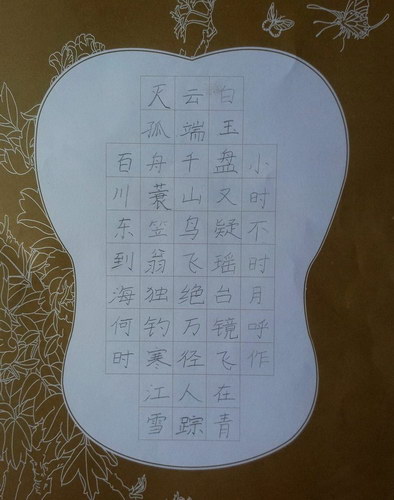 小时不时月呼作
白玉盘又疑瑶台镜飞在青
云端千山鸟飞绝万径人踪
灭孤舟蓑笠翁独钓寒江雪
百川东到海何时